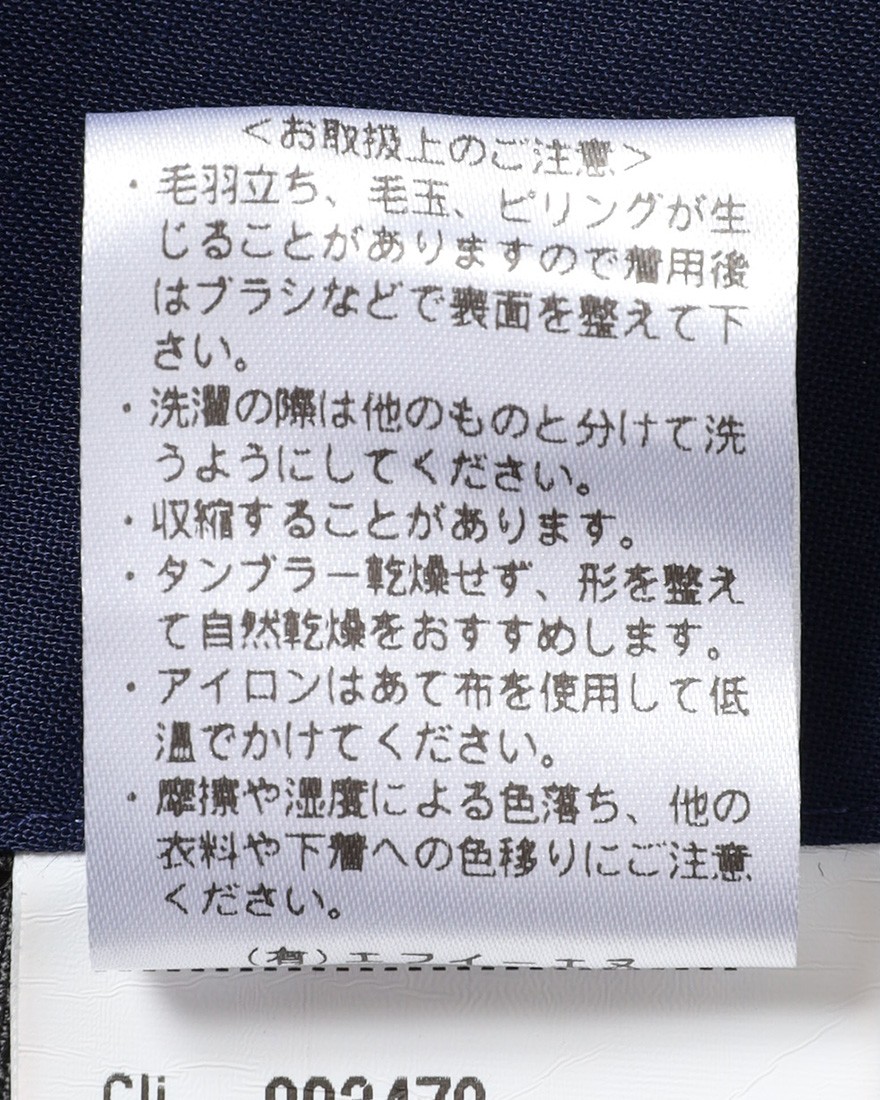 ＜お取扱上のご注意＞
・毛羽立ち、毛玉、ピリングが生
じることがありますので着用後
はブラシなどで表面を整えて下
さい。
・洗濯の際は他のものと分けて洗
うようにしてください。
・収縮することがあります。
・タンブラー乾燥せず、形を整え
て自然乾燥をおすすめします。
・アイロンはあて布を使用して低
温でかけてください。
・摩擦や湿度による色落ち、他の
衣料や下着への色移りにご注意
ください。
（有）エフイーエヌ